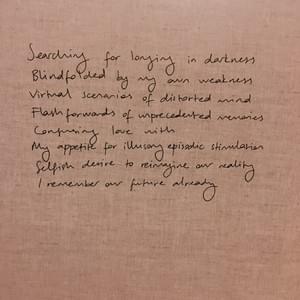 Searching for longing in darkness
Blindfolded by my own weakness
Virtual scenarios of distorted mind
Flashforwards of unprecedented memories
Confusing love with
My appetite for illusory episodic stimulation
Selfish desire to reimagine our reality
I remember our future already